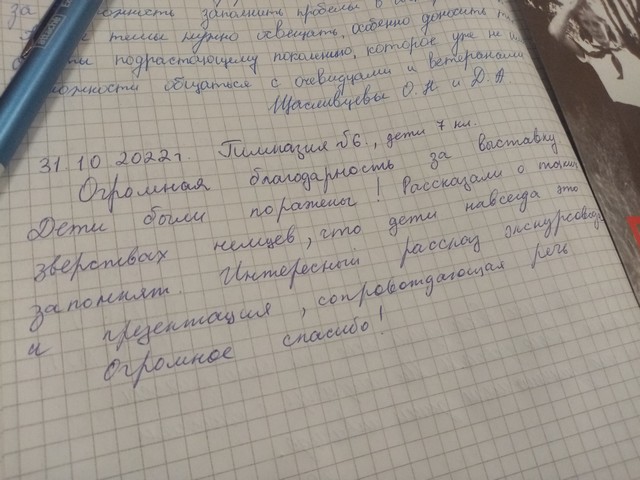 за возможность заполнить пробелы в
темы нужно освещать, особенно доносить
подрастающему поколению, которое уже не
общаться с очевидцами и ветеранами
Щасливцевы О. Н. и Д. А
31.10.2022г. Гимназия №6., дети 7 кл.
Огромная благодарность за выставку
Дети были поражены! Рассказали о таких
зверствах немцев, что дети навсегда это
запомнят. Интересный рассказ экскурсовода
и презентация, сопровождающая речь
Огромное спасибо!